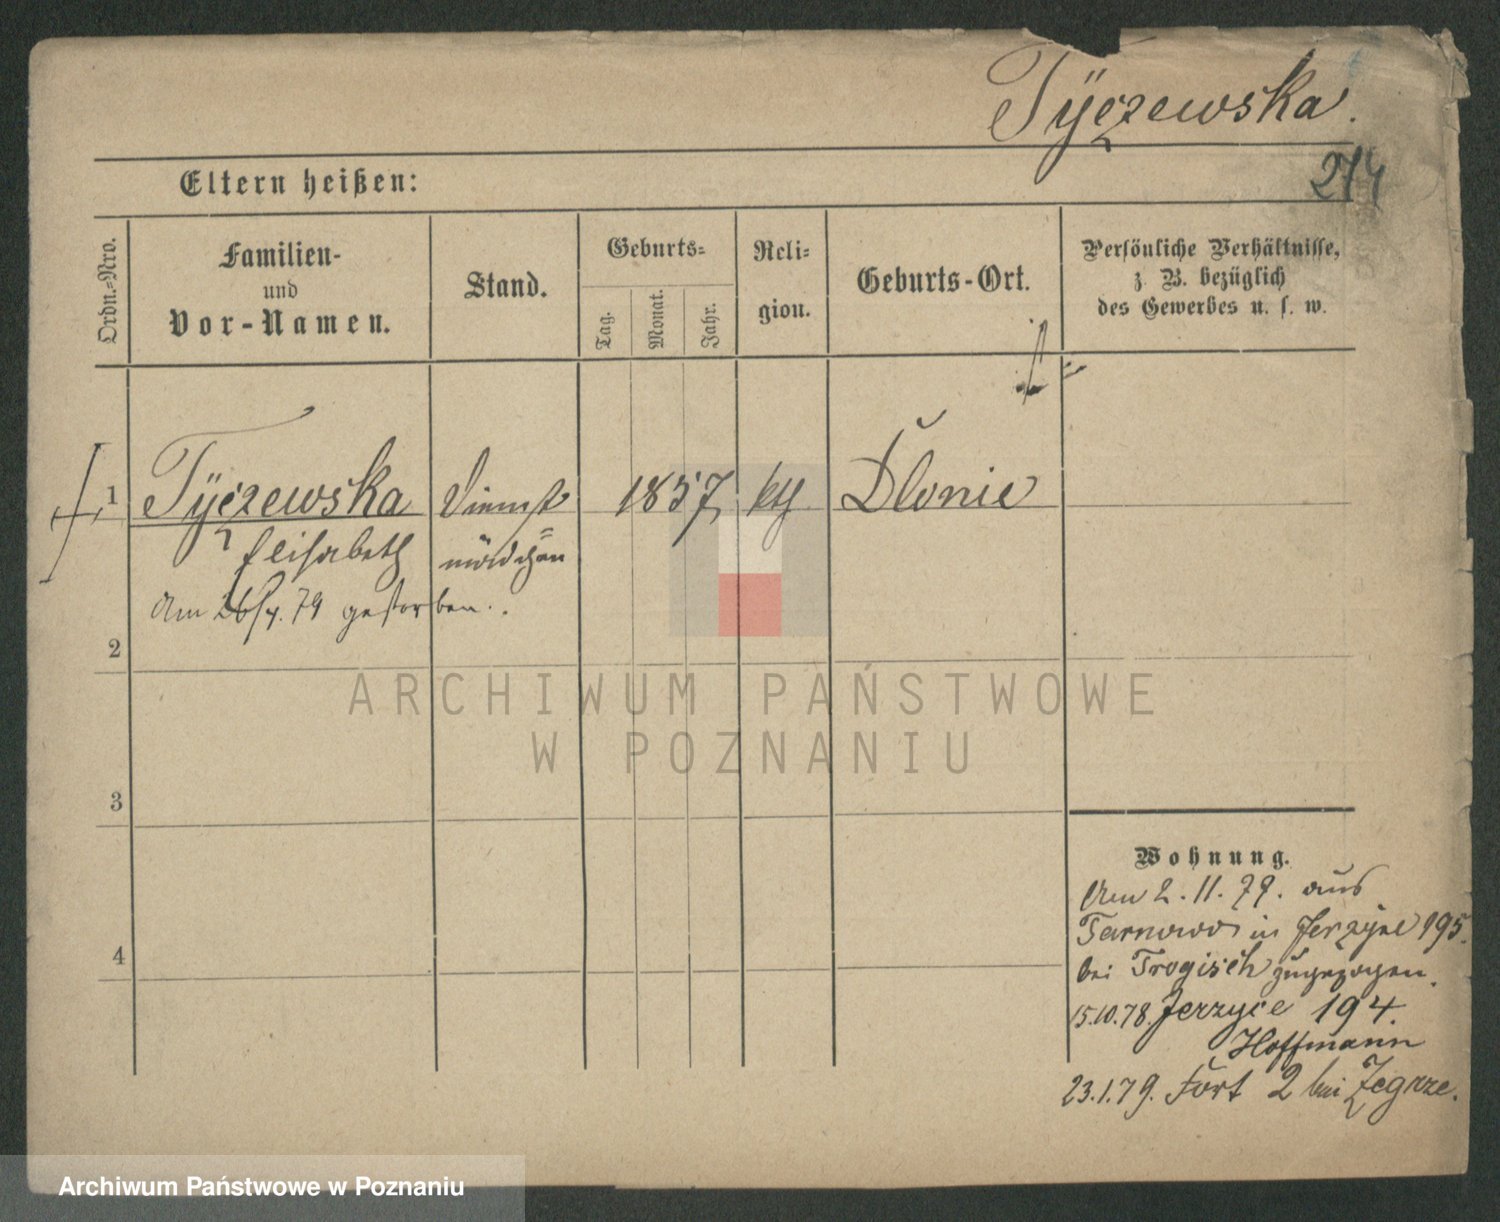 Tyczewska.
274
Eltern heißen:
Ordn.-Nro.
Familien-
und
Vor-Namen.
Stand.
Geburts-
Tag.
Monat.
Jahr.
Reli-
gion.
Geburts-Ort.
Persönliche Verhältnisse,
z. B. bezüglich
des Gewerbes u. s. w.
1 Tyczewska Dienst 1857 kth Dlonie
Elisabeth mädchen
Am 26/4. 79 gestorben.
2
ARCHIWUM PAŃSTWOWE
W POZNANIU
3
4
Wohnung.
Am 2.11.77. aus
Tarnowo in Jerzyce 195.
bei Trogisch zugezogen.
15.10.78. Jerzyce 194.
Hoffmann
23.1.79. Fort 2 bei Zegrze.
Archiwum Państwowe w Poznaniu